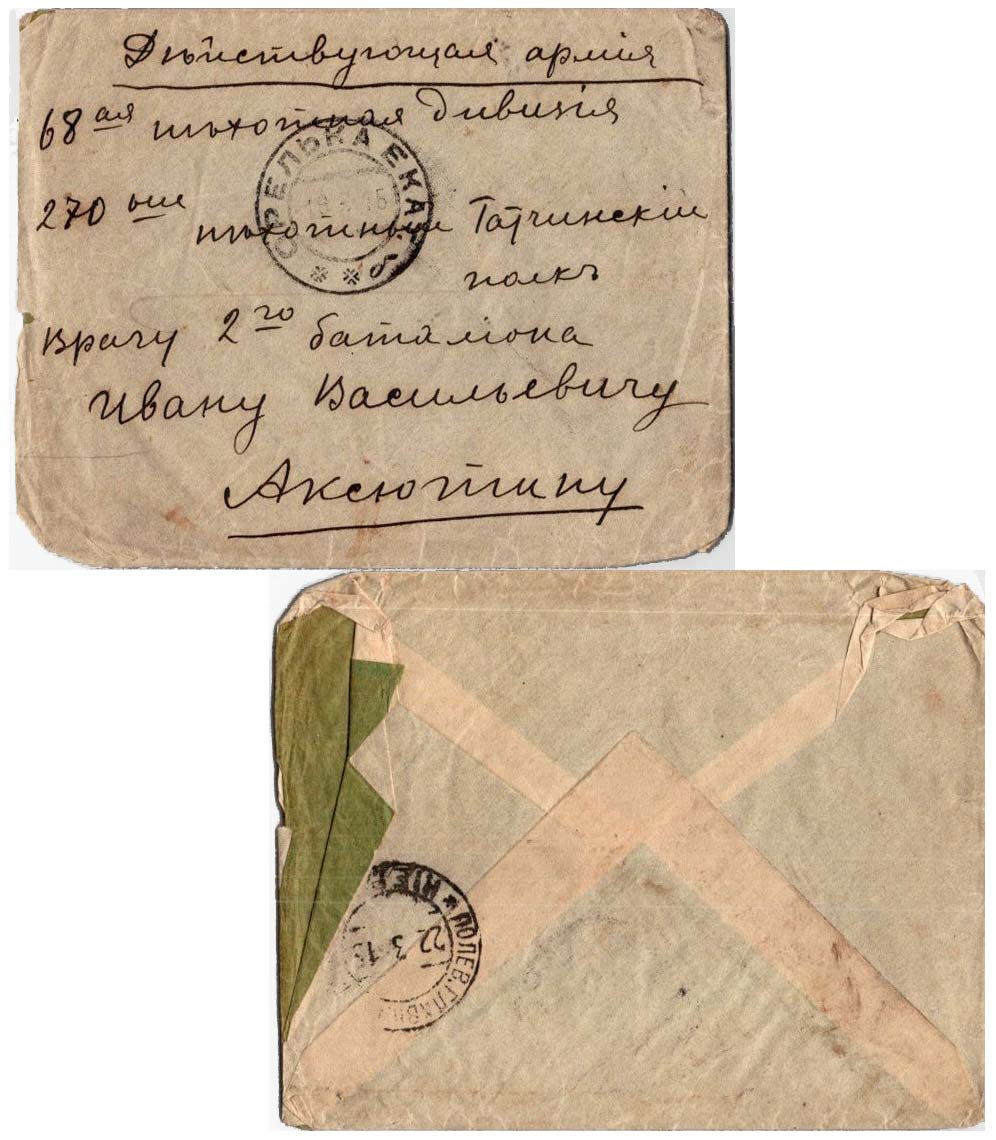 Дѣйствующая армія
68 ая пѣхотная дивизія
270 ый пѣхотный Гатчинскій
полкъ
Врачу 2го баталіона
Ивану Васильевичу
Аксютину
ОРЕЛЬКА ЕКАТ.
22 3 15
ПОЛЕВ. ГЛАВН.